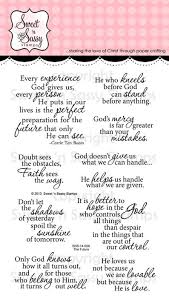 Sweet 'n Sassy
stamps
...sharing the love of Christ through paper crafting
Every experience
God gives us,
every person
He puts in our
lives is the perfect
preparation for the
future that only
He can see.
-Corrie Ten Boom
He who kneels
before God can
stand before
anything.
God's mercy
is far greater
than your
mistakes.
Doubt sees
the obstacles,
Faith sees
the way.
© 2010 Sweet 'n Sassy Stamps
God doesn't give us
what we can handle...
He helps us handle
what we're given.
Don't let the
shadows of
yesterday
spoil the
sunshine of
tomorrow.
It is better to
hope in the God
that is in control
than despair
in the things
that are out of
our control.
SNS-14-026
The Future
Only God knows
how it all turns out,
and for those
who belong to Him,
it is well.
He loves us not
because we are
lovable but because
He is love.